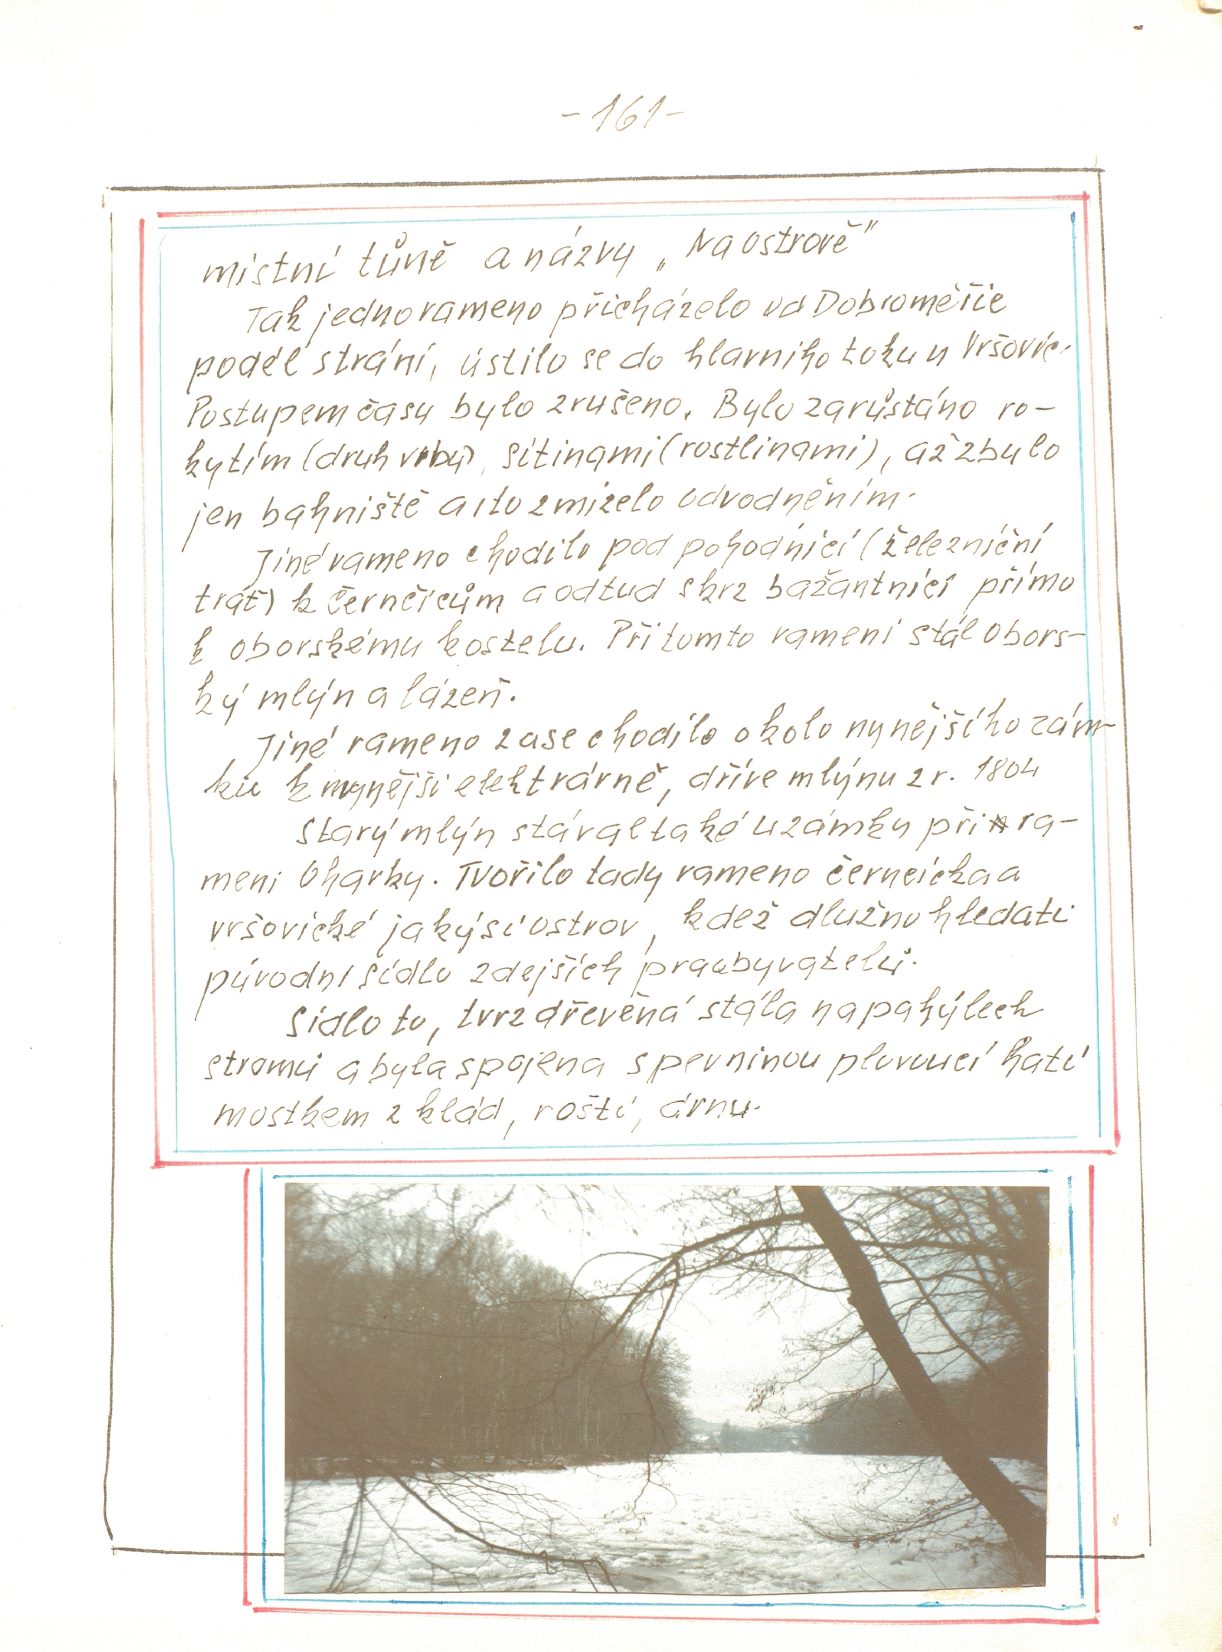 -161-
místní tůně a názvy „Na ostrově"
Tak jedno rameno přicházelo od Dobroměřic
podél strání, ústilo se do hlavního toku u Vršovic.
Postupem času bylo zrušeno. Bylo zarůstáno ro-
kytím (druh vrby), sítinami (rostlinami), až zbylo
jen bahniště a i to zmizelo odvodněním.
Jiné rameno chodilo pod pohodnicí (železniční
trať) k Černčicům a odtud skrz bažantnici přímo
k oborskému kostelu. Při tomto rameni stál obors-
ký mlýn a lázeň.
Jiné rameno zase chodilo okolo nynějšího zám-
ku k nynější elektrárně, dříve mlýnu z r. 1804
Starý mlýn stával také u zámku při ra-
meni Oharky. Tvořilo tady rameno černčická a
vršovické jakýsi ostrov, kdež dlužno hledati
původní sídlo zdejších praobyvatelů.
Sídlo to, tvrz dřevěná stála na pahýlech
stromů a byla spojena s pevninou plovoucí hatí
mostkem z klád, roští, drnu.